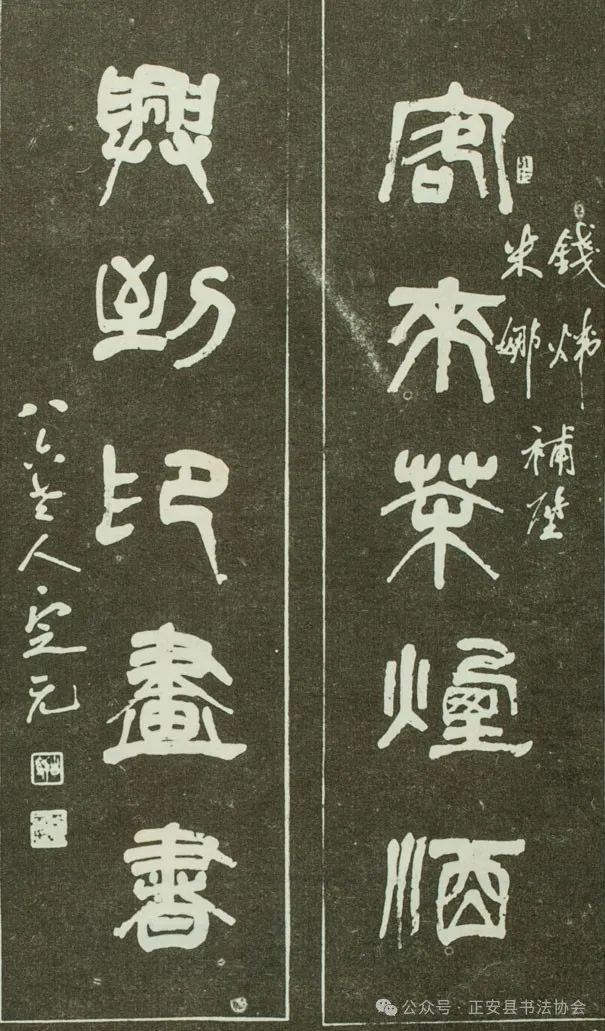 客來茶煙酒
錢煒
朱娜
補壁
興到印畫書
八六老人定元
公众号·正安县书法协会